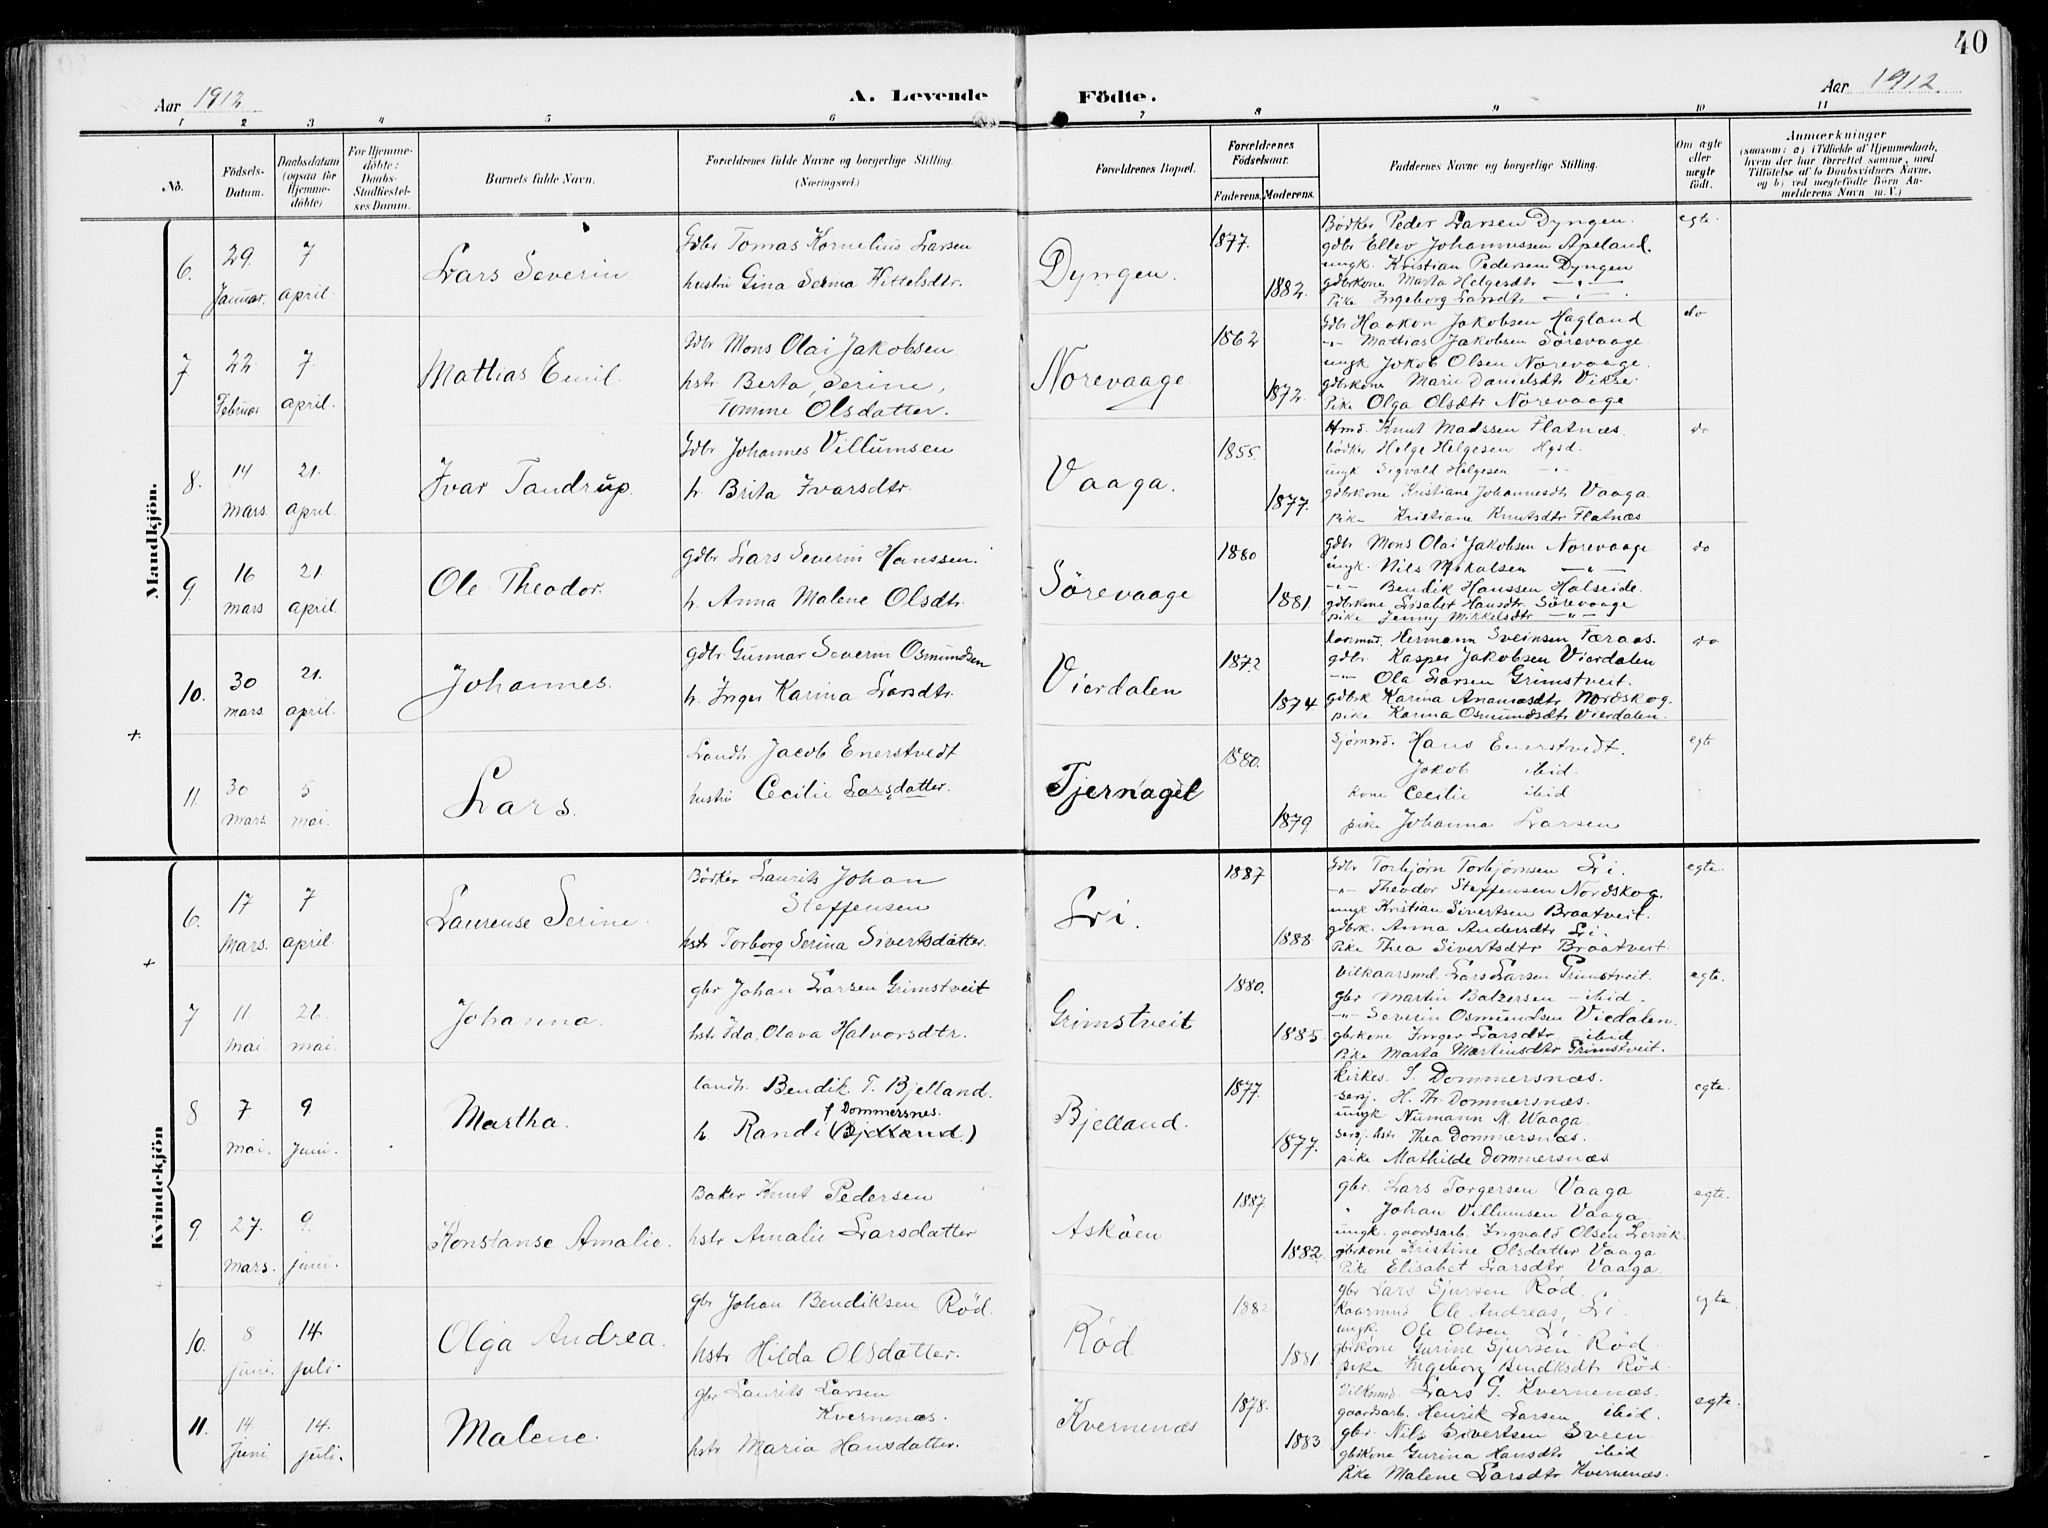 40
Aar 1912
A. Levende Födte.
Aar 1912.
1 2 3 4 5 6 7 8 9 10 11
No.
Födsels-
Datum.
Daabsdatum
(ogsaa for
Hjemme-
döbte)
For Hjemme-
döbte:
Daabs-
Stadfæstel-
ses Datum.
Barnets fulde Navn.
Forældrenes fulde Navne og borgerlige Stilling.
(Næringsvei.)
Forældrenes Bopæl.
Forældrenes
Födselsaar.
Faderens. Moderens.
Faddernes Navne og borgerlige Stilling.
Om ægte
eller
uægte
födt.
Anmærkninger
(saasom: a) i Tilfælde af Hjemmedaab,
hvem der har forrettet samme, med
Tilföielse af to Daabsvidners Navne,
og b) ved uægtefödte Börn An-
melderens Navn m. V.)
Mandkjön.
6. 29. Januar. 7 april.
Lars Severin
Gdbr Tomas Kornelius Larsen
hustru Gina Serina Kittelsdtr.
Dyngen.
1877.
1882.
Bødker Peder Larsen Dyngen.
gdbr Ellev Johannessen Apeland.
ungk. Kristian Pedersen Dyngen
gdbrkone Marta Helgesdtr — " —
Pike Ingeborg Larsdtr — " —
egte.
7 22. Februar 7. april.
Mattias Emil.
Gdbr Mons Olai Jakobsen
hstr Berta, Serine,
Tomine Olsdatter.
Norevaage
1862
1872.
Gdbr Haakon Jakobsen Hagland
-"- Mattias Jakobsen Sörevaage
ungk Jokob Olsen Norevaage.
gdbrkone Marie Danielsdtr Vikse.
Pike Olga Olsdtr Norevaage
do
8. 14 mars. 21. april.
Ivar Tandrup.
Gdbr Johannes Villumsen
h. Brita Ivarsdtr.
Vaaga.
1855.
1877.
Hmd. Knut Madssen Flatnæs
bødker Helge Helgesen Hgsd.
ungk Sigvald Helgesen -"-
gdbrkone Kristiane Johannesdtr Vaaga.
pike Kristiane Knutsdtr Flatnæs
do
9. 16 mars 21 april.
Ole Theodor.
gdbr Lars Severin Hanssen.
h. Anna Malene Olsdtr.
Sörevaage
1880
1881.
gdbr Mons Olai Jakobsen Norevaage
ungk. Nils Mikalsen — " —
-"- Bendik Hanssen Halseide.
gdbrkone Lisabet Hansdtr. Sörevaage
pike Jenny Mikkelsdtr — " —
do
10. 30 mars. 21. april.
Johannes.
gdbr. Gunnar Severin Osmundsen
h. Inger Karina Larsdtr.
Vierdalen
1872.
1874
Kaarmd. Hermann Sveinsen Tæraas.
gdbr Kasper Jakobsen Vierdalen
-"- Ola Larsen Grimstveit.
gdbrk Karina Ananiasdtr Nordskog.
pike Karina Osmundsdtr Vierdalen.
do
+
11. 30 mars. 5 mai.
Lars.
Landh. Jacob Enerstvedt
hustru Cecilie Larsdatter.
Tjernagel
1880.
1879
Sjømnd. Hans Enerstvedt.
Jakob ibid.
kone Cecilie ibid
pike Johanna Larsen
egte
Kvindekjön
6. 17 Mars. 7 april.
Laurense Serine.
Bödker Laurits Johan
Steffensen
hstr Torborg Serina Sivertsdatter.
Li.
1887
1888
Gdbr Torbjørn Torbjørnsen Li.
-"- Theodor Steffensen Nordskog.
ungk Kristian Sivertsen Braatveit.
gdbrk. Anna Andersdtr Li.
Pike Thea Sivertsdtr Braatveit
egte.
+
7 11 mai. 26. mai.
Johanna.
gbr Johan Larsen Grimstveit
hstr Ida, Olava Halvorsdtr.
Grimstveit
1880.
1885.
Vilkaarsmd. Lars Larsen Grimstveit.
gbr Martin Balzersen — ibid.
-"- Severin Osmundsen Vierdalen.
gbrkone Inger Larsdtr ibid
Pike Marta Martinsdtr Grimstveit.
egte.
8 7 mai. 9 Juni.
Martha.
landh. Bendik T. Bjelland.
f Dommersnes.
h Randi (Bjelland)
Bjelland.
1877.
1877.
Kirkes. S. Dommersnæs.
sersj. H. Th. Dommersnæs.
ungk Numann M. Waaga.
sersj. hstr Thea Dommersnæs.
pike Mathilde Dommersnæs.
egte.
9. 27. mars. 9. juni.
Konstanse Amalie.
Baker Knut Pedersen
hstr Amalie Larsdatter
Askøen
1887.
1882.
gbr. Lars Torgersen Vaaga
" Johan Villumsen Vaaga.
ungk. gaardsarb. Ingvald Olsen Lervik.
gbrkone Kristine Olsdatter Vaaga.
Pike Elisabet Larsdtr Vaaga.
egte.
10. 8 juni. 14 juli.
Olga Andrea.
gbr Johan Bendiksen Rød.
hstr Hilda Olsdatter.
Rød
1882
1881.
gbr Lars Sjursen Rød.
Kaarmnd Ole Andreas, Li.
ungk. Ole Olsen Li.
gbrkone Gurine Sjursen Rød.
pike Ingeborg Bendiksdtr Rød.
egte.
11. 14. Juni 14. juli.
Malene.
gbr Laurits Larsen
Kvernenæs.
hstr Maria Hansdatter.
Kvernenæs
1878.
1883
Vilkmnd. Lars G. Kvernenæs.
gaardsarb. Henrik Larsen ibid.
gbr. Nils Sivertsen Sveen.
gbrkone Gurina Hansdtr ibid
Pike Malene Larsdtr Kvernenæs.
egte.